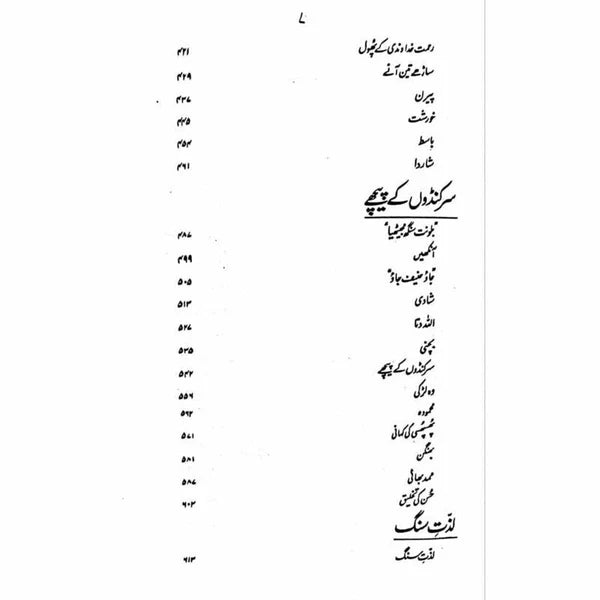 ۷
رحمت خداوندی کے پھول ۴۲۱
ساڑھے تین آنے ۴۲۹
پیرن ۴۳۷
خورشٹ ۴۴۵
باسط ۴۵۴
شاردا ۴۶۱
سرکنڈوں کے پیچھے
"بلونت سنگھ مجیٹھیا" ۴۸۷
آنکھیں ۴۹۹
"جاؤ حنیف جاؤ" ۵۰۵
شادی ۵۱۳
اللہ دتا ۵۲۷
بچنی ۵۳۵
سرکنڈوں کے پیچھے ۵۴۲
وہ لڑکی ۵۵۶
محمودہ ۵۶۲
پھسپھسی کہانی ۵۷۱
بھنگن ۵۸۱
ممد بھائی ۵۸۷
حسن کی تخلیق ۶۰۳
لذتِ سنگ
لذتِ سنگ ۶۱۳